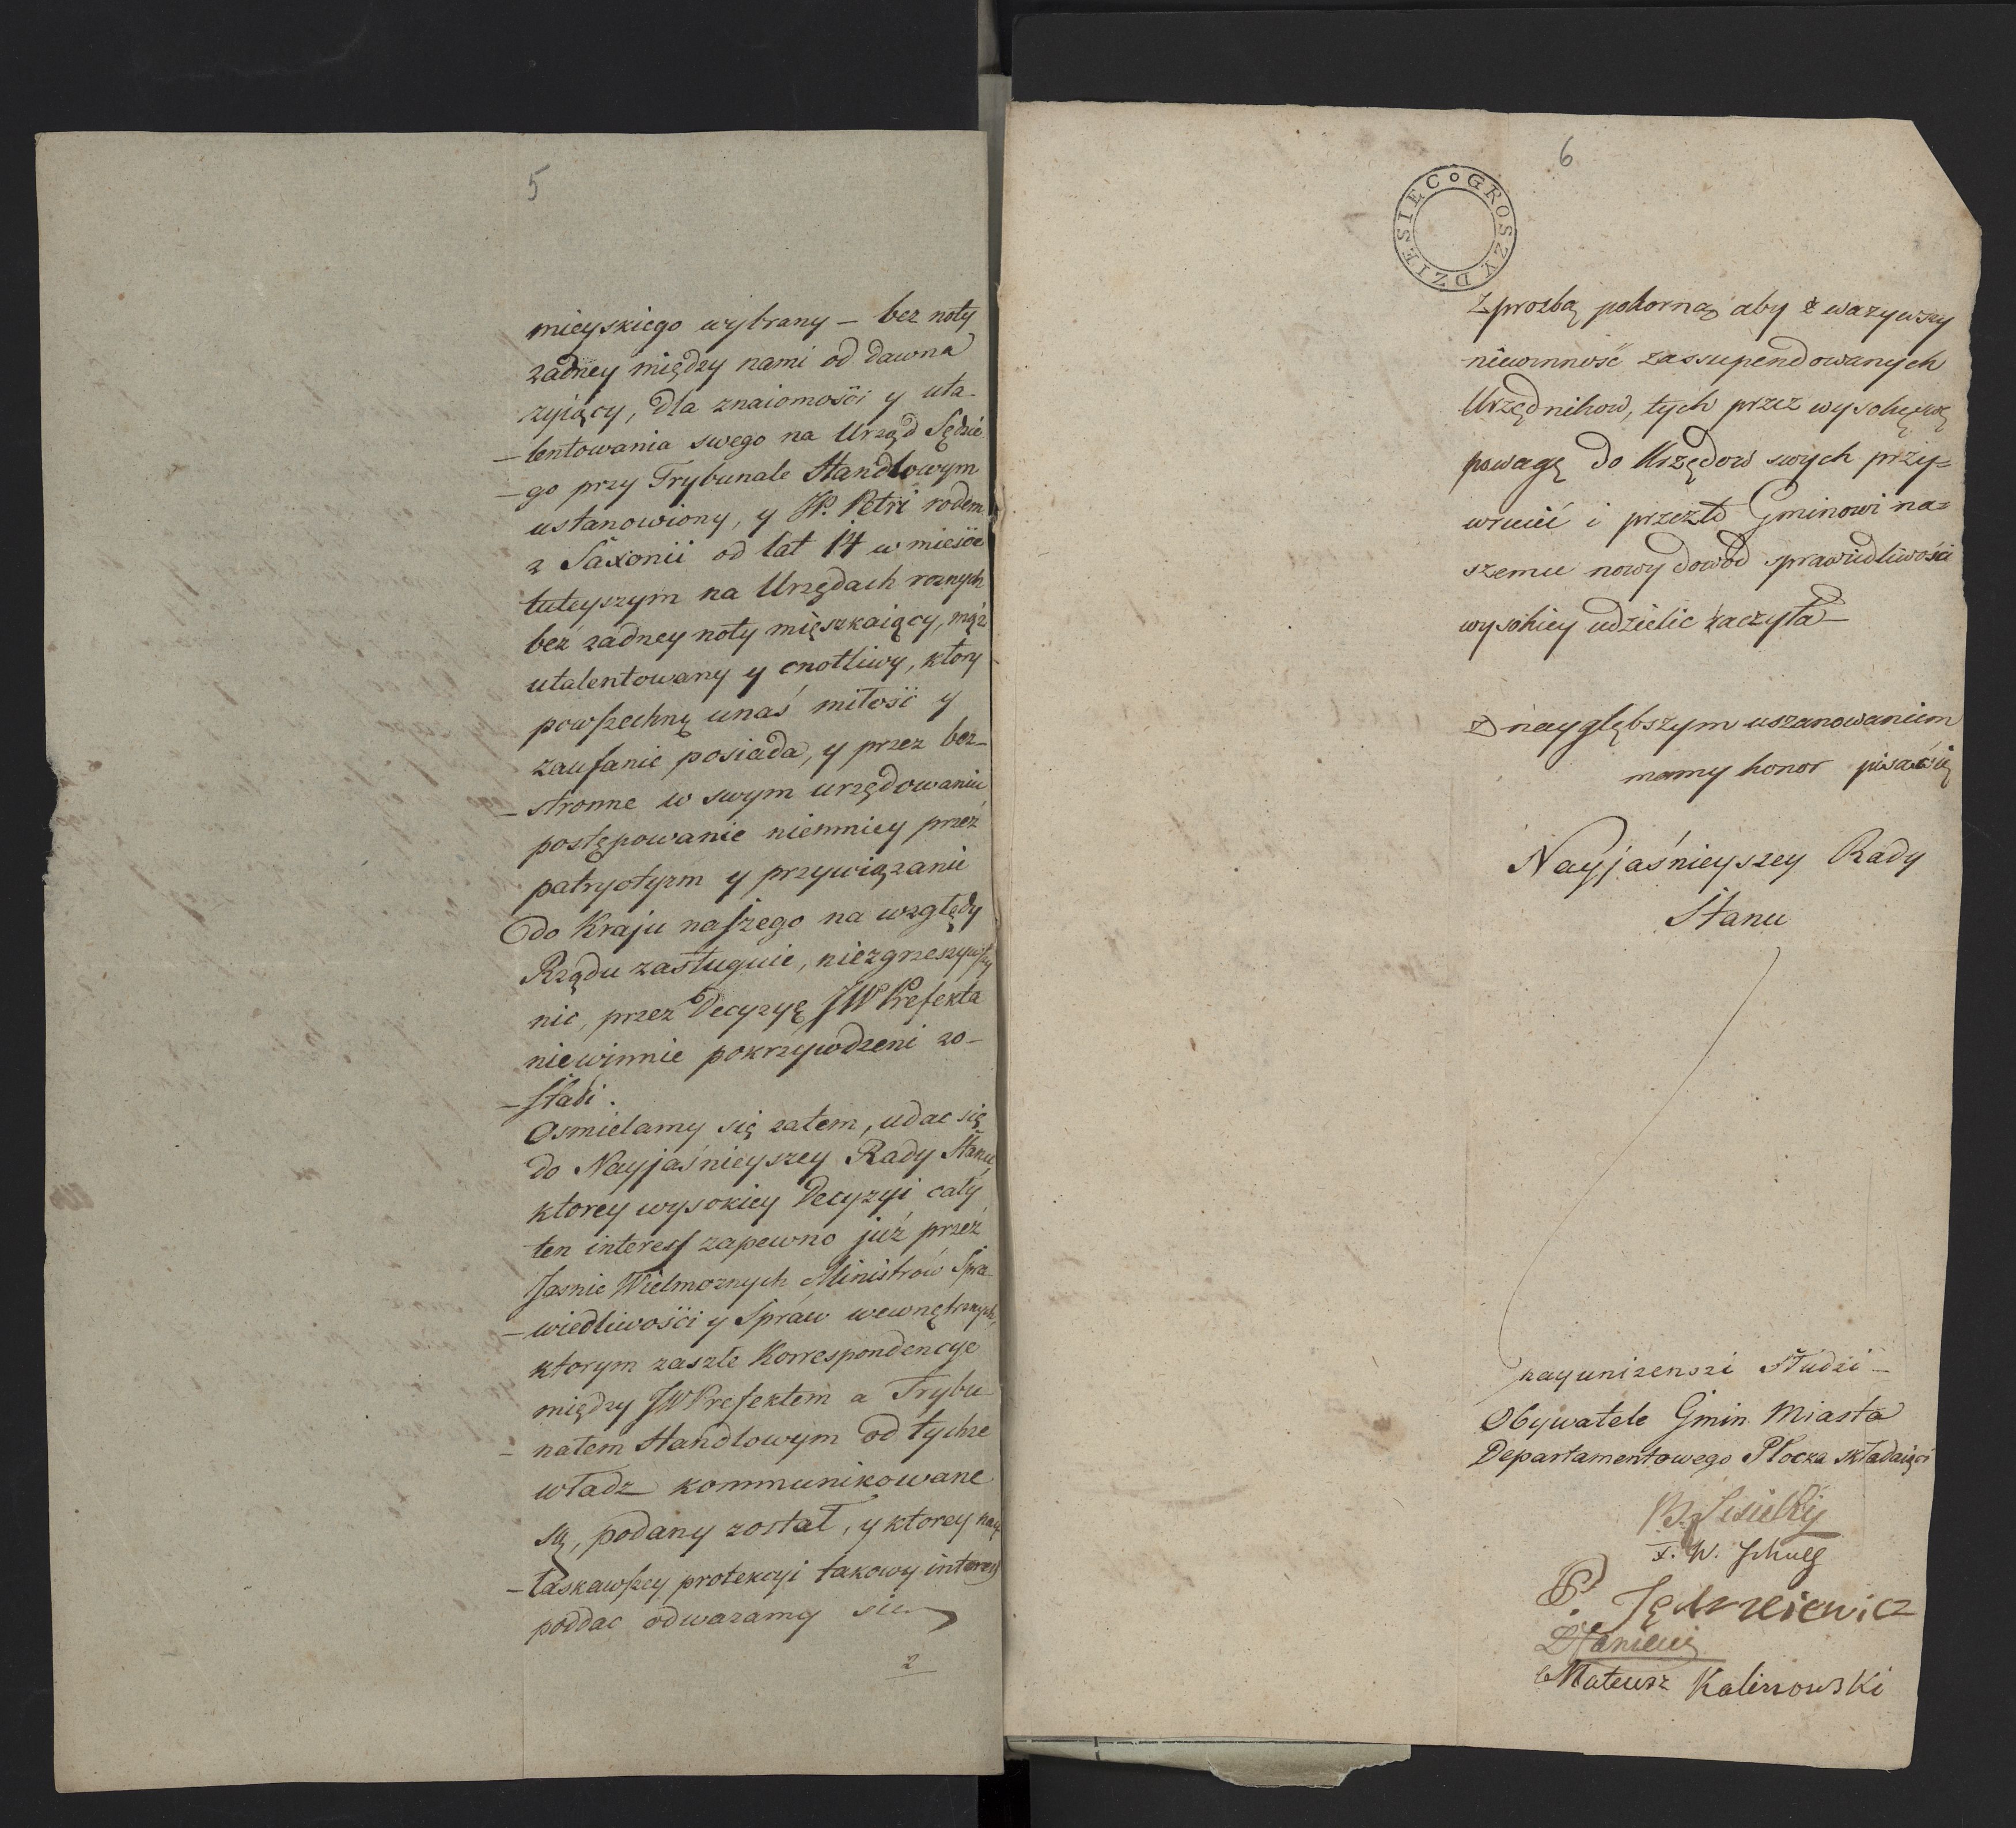 5
mieyskiego wybrany – bez noty
żadney między nami od dawna
zyiący, dla znaiomości y uta-
– lentowania swego na Urząd Sędzie
– go przy Trybunale Handlowym
ustanowiony, y JP. Petri rodem
z Saxonii od lat 14 w mieście
tuteyszym na Urzędach roznych
bez zadney noty mięszkaiący, mąż
utalentowany y cnotliwy, ktory
powszechną unas miłość y
zaufanie posiada, y przez bez-
– stronne w swym urzędowaniu
postępowanie niemniey przez
patryotyzm y przywiązanie
do Kraju naszego na względy
Rządu zasługuie, niezgrzeszywszy
nic, przez Decyzyę JW Prefekta
niewinnie pokrzywdzeni zo-
– stali.
Osmielamy się zatem, udac się
do Nayjaśnieyszey Rady Stanu,
ktorey wysokiey Decyzyi cały
ten interess zapewno już przez
Jasnie Wielmoznych Ministrów Spra-
– wiedliwości y Spraw wewnętrznych,
ktorym zaszłe Korrespondencye
między JW Prefektem a Trybu-
– nałem Handlowym od tychze
władz kommunikowane
są, podany został, y ktorey nay
– łaskawszey protekcyi takowy interess
poddac odwazamy sie
2
6
DZIESIĘC GROSZY
Z prozbą pokorną aby zwazywszy
niewinność zassupendowanych
Urzędnikow, tych przez wysokę swę
powagę do Urzędow swych przy=
wrucić i przezto Gminowi na=
szemu nowy dowod sprawiedliwości
wysokiey udzielic raczyła –
Z nayglębszym uszanowaniem
mamy honor pisać się
Nayjaśnieyszey Rady
Stanu
nayunizensi Słudzi –
Obywatele Gmin Miasta
Departamentowego Płocka składaiąci
F. W. Schulz
P. Jędrzeiewicz
Mateusz Kalinowski